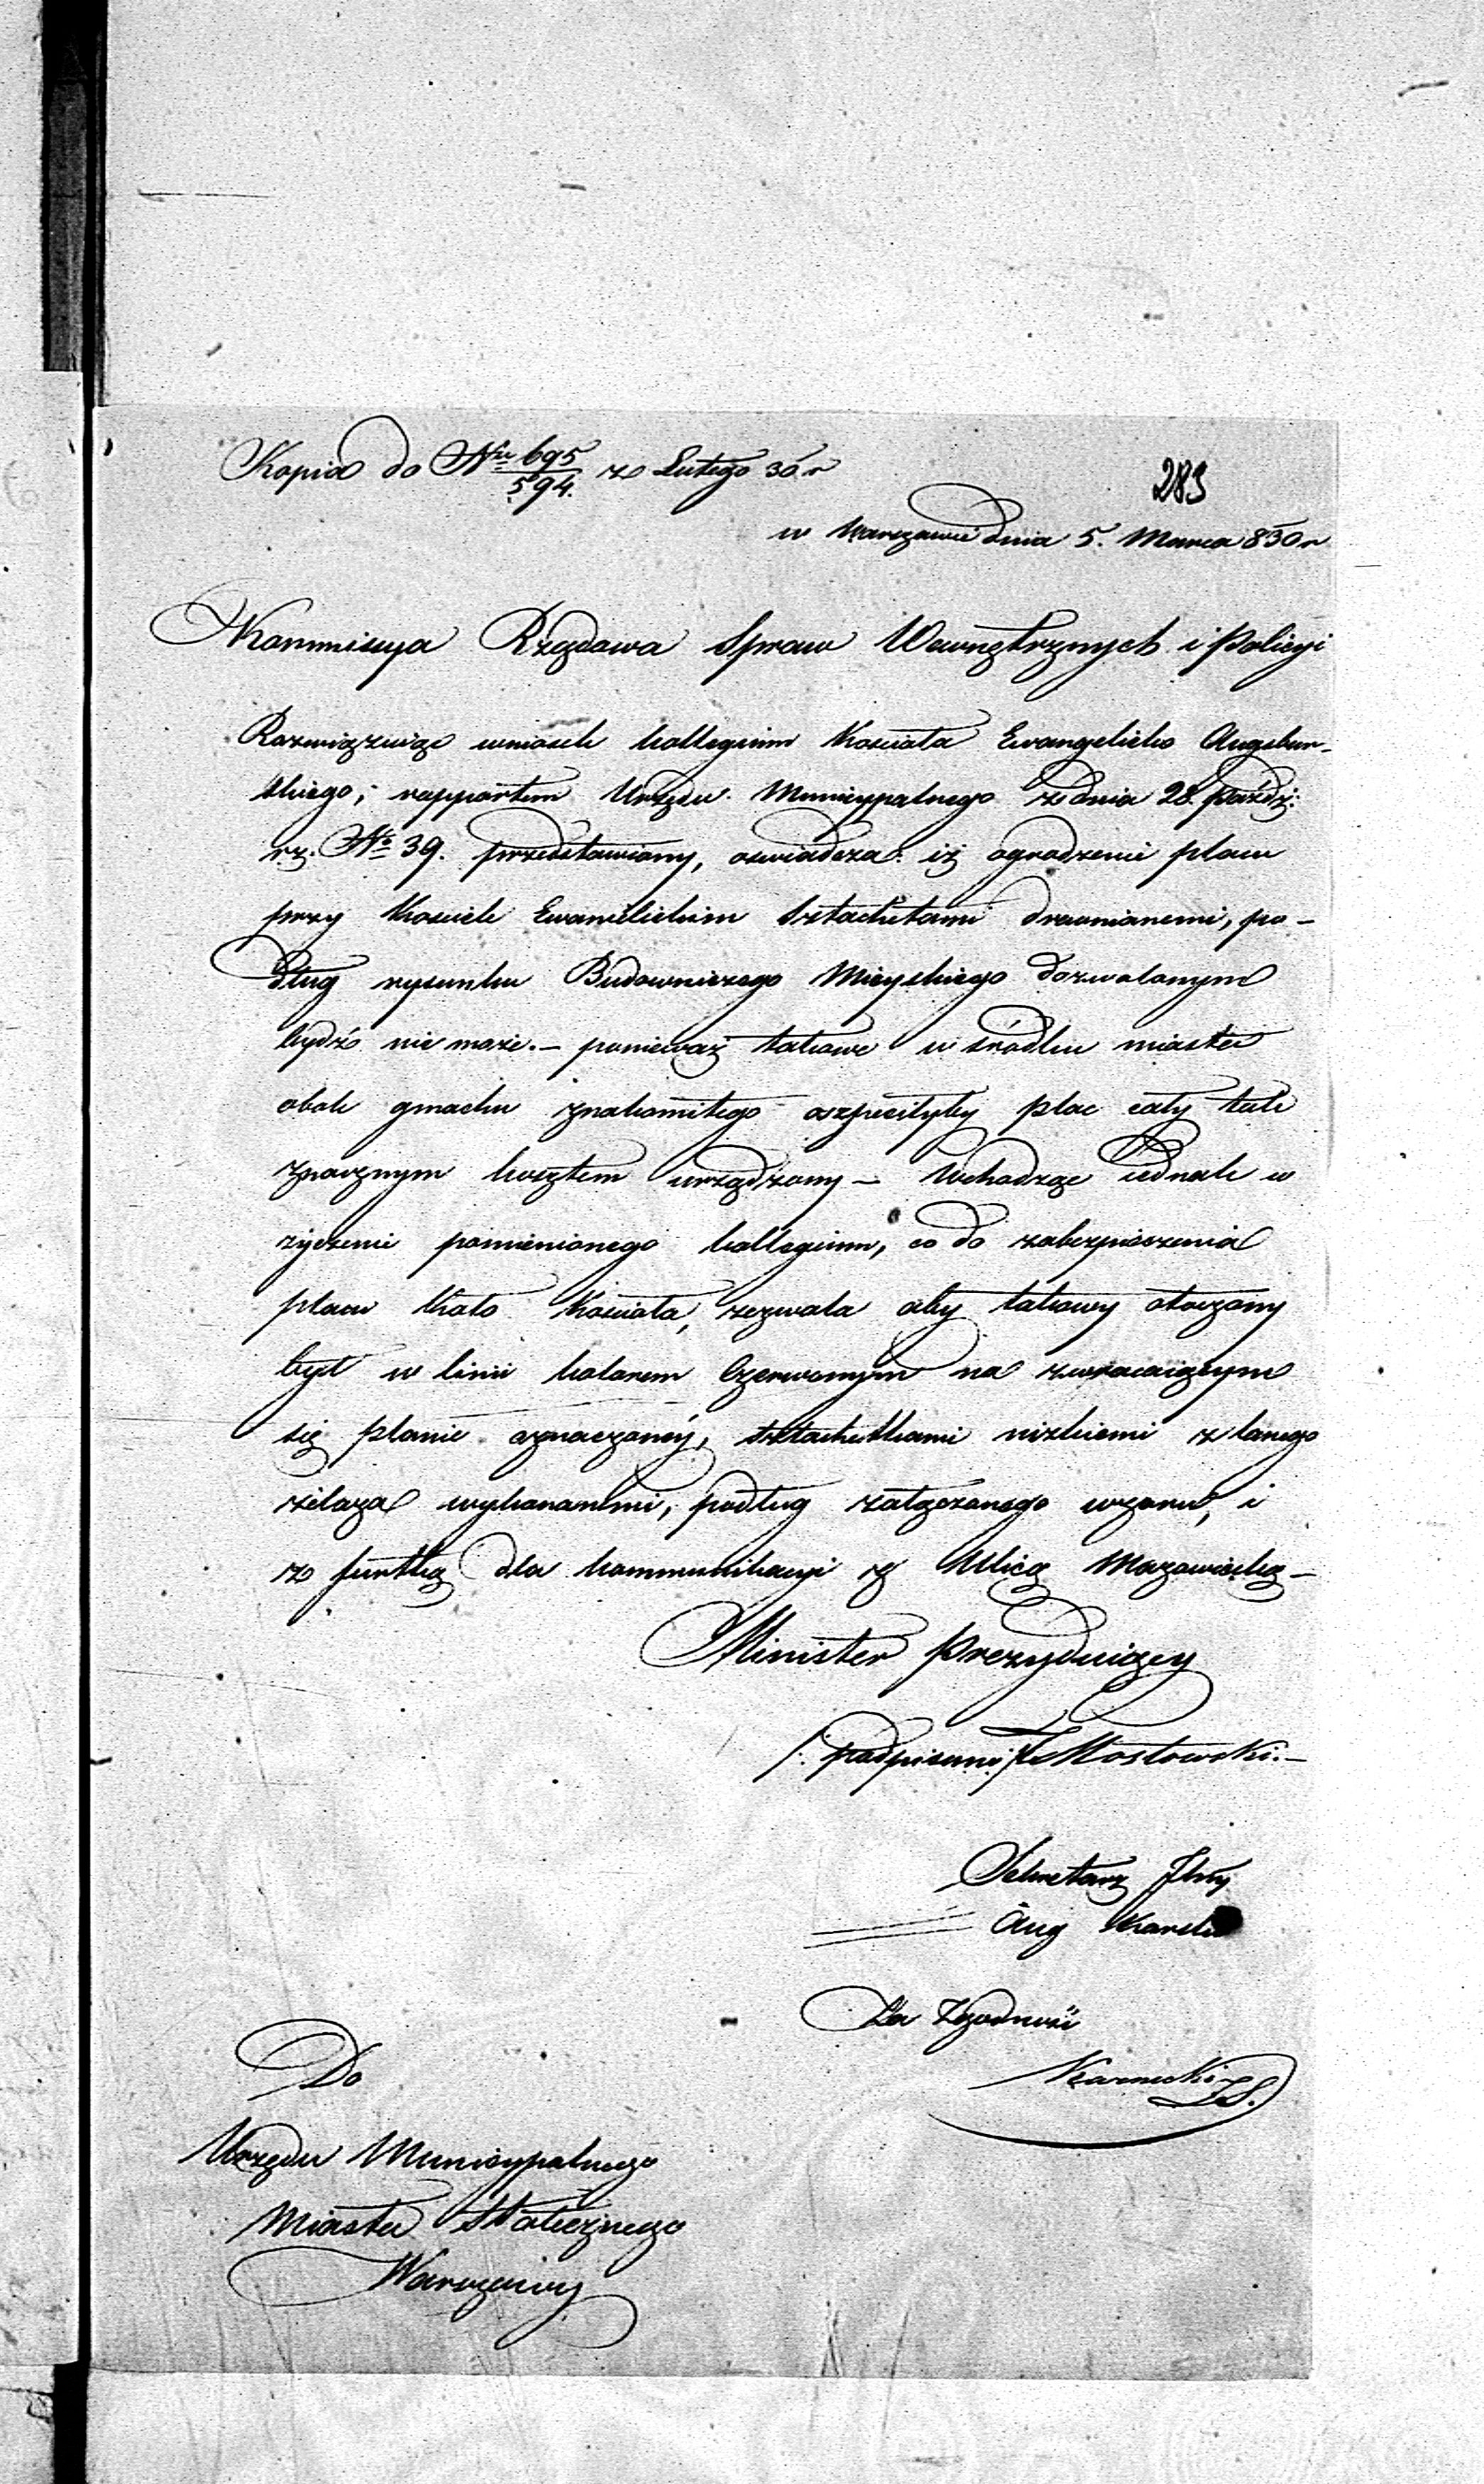 Kopia do Nru 695/594. ze Lutego 30 r
283
w Warszawie dnia 5. Marca 830 r
Kommissya Rządowa Spraw Wewnętrznych i Policyi
Rozwiązuiąc wniosek kollegium Kościoła Ewangelicko Augsbur-
skiego; rapportem Urzędu Municypalnego z dnia 28. Paźdz:
rz. No 39. przedstawiony, oświadcza: iż ogrodzenie placu
przy Kościele Ewanielickim sztachetami drewnianemi, po-
dług rysunku Budowniczego Mieyskiego dozwolonym
bydź nie może. – ponieważ takowe w śródku miasta
obok gmachu znakomitego oszpeciłyby plac cały tak
znacznym kosztem urządzony – Wchodząc iednak w
życzenie pomienionego kollegium, co do zabezpieczenia
placu koło Kościoła, zezwala aby takowy otoczony
był w linii kolorem Czerwonym na zwracaiącym
się planie oznaczoney, sztachetkami nizkiemi z lanego
żelaza wykonanemi, podług załączonego wzoru, i
z furtką dla kommunikacyi z Ulicą Mazowiecką –
Minister Prezyduiący
/: podpisano :/ T. Mostowski. –
Sekretarz Jlny
Aug Karski
Za Zgodność
Karnicki Z.S.
Do
Urzędu Municypalnego
Miasta Stołecznego
Warszawy